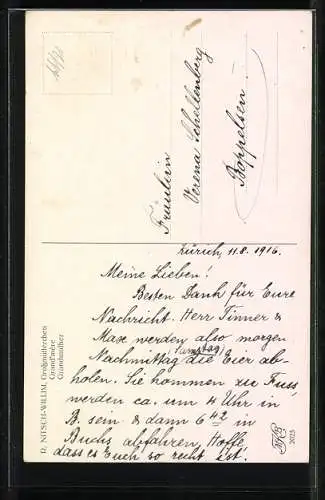 Fräulein
Verena Schellenberg
Boppelsen.
Zürich, 11.8. 1916.
Meine Lieben!
Besten Dank für Eure
Nachricht. Herr Tinner &
Max werden also morgen
(Samstag)
Nachmittag die Eier ab-
holen. Sie kommen zu Fuss,
werden ca. um 4 Uhr in
B. sein & dann 6 42 in
Buchs abfahren. Hoffe
dass es Euch so recht ist.
D. NITSCH-WILLIM, Großmütterchen
Grand'mère
Grandmother
2025